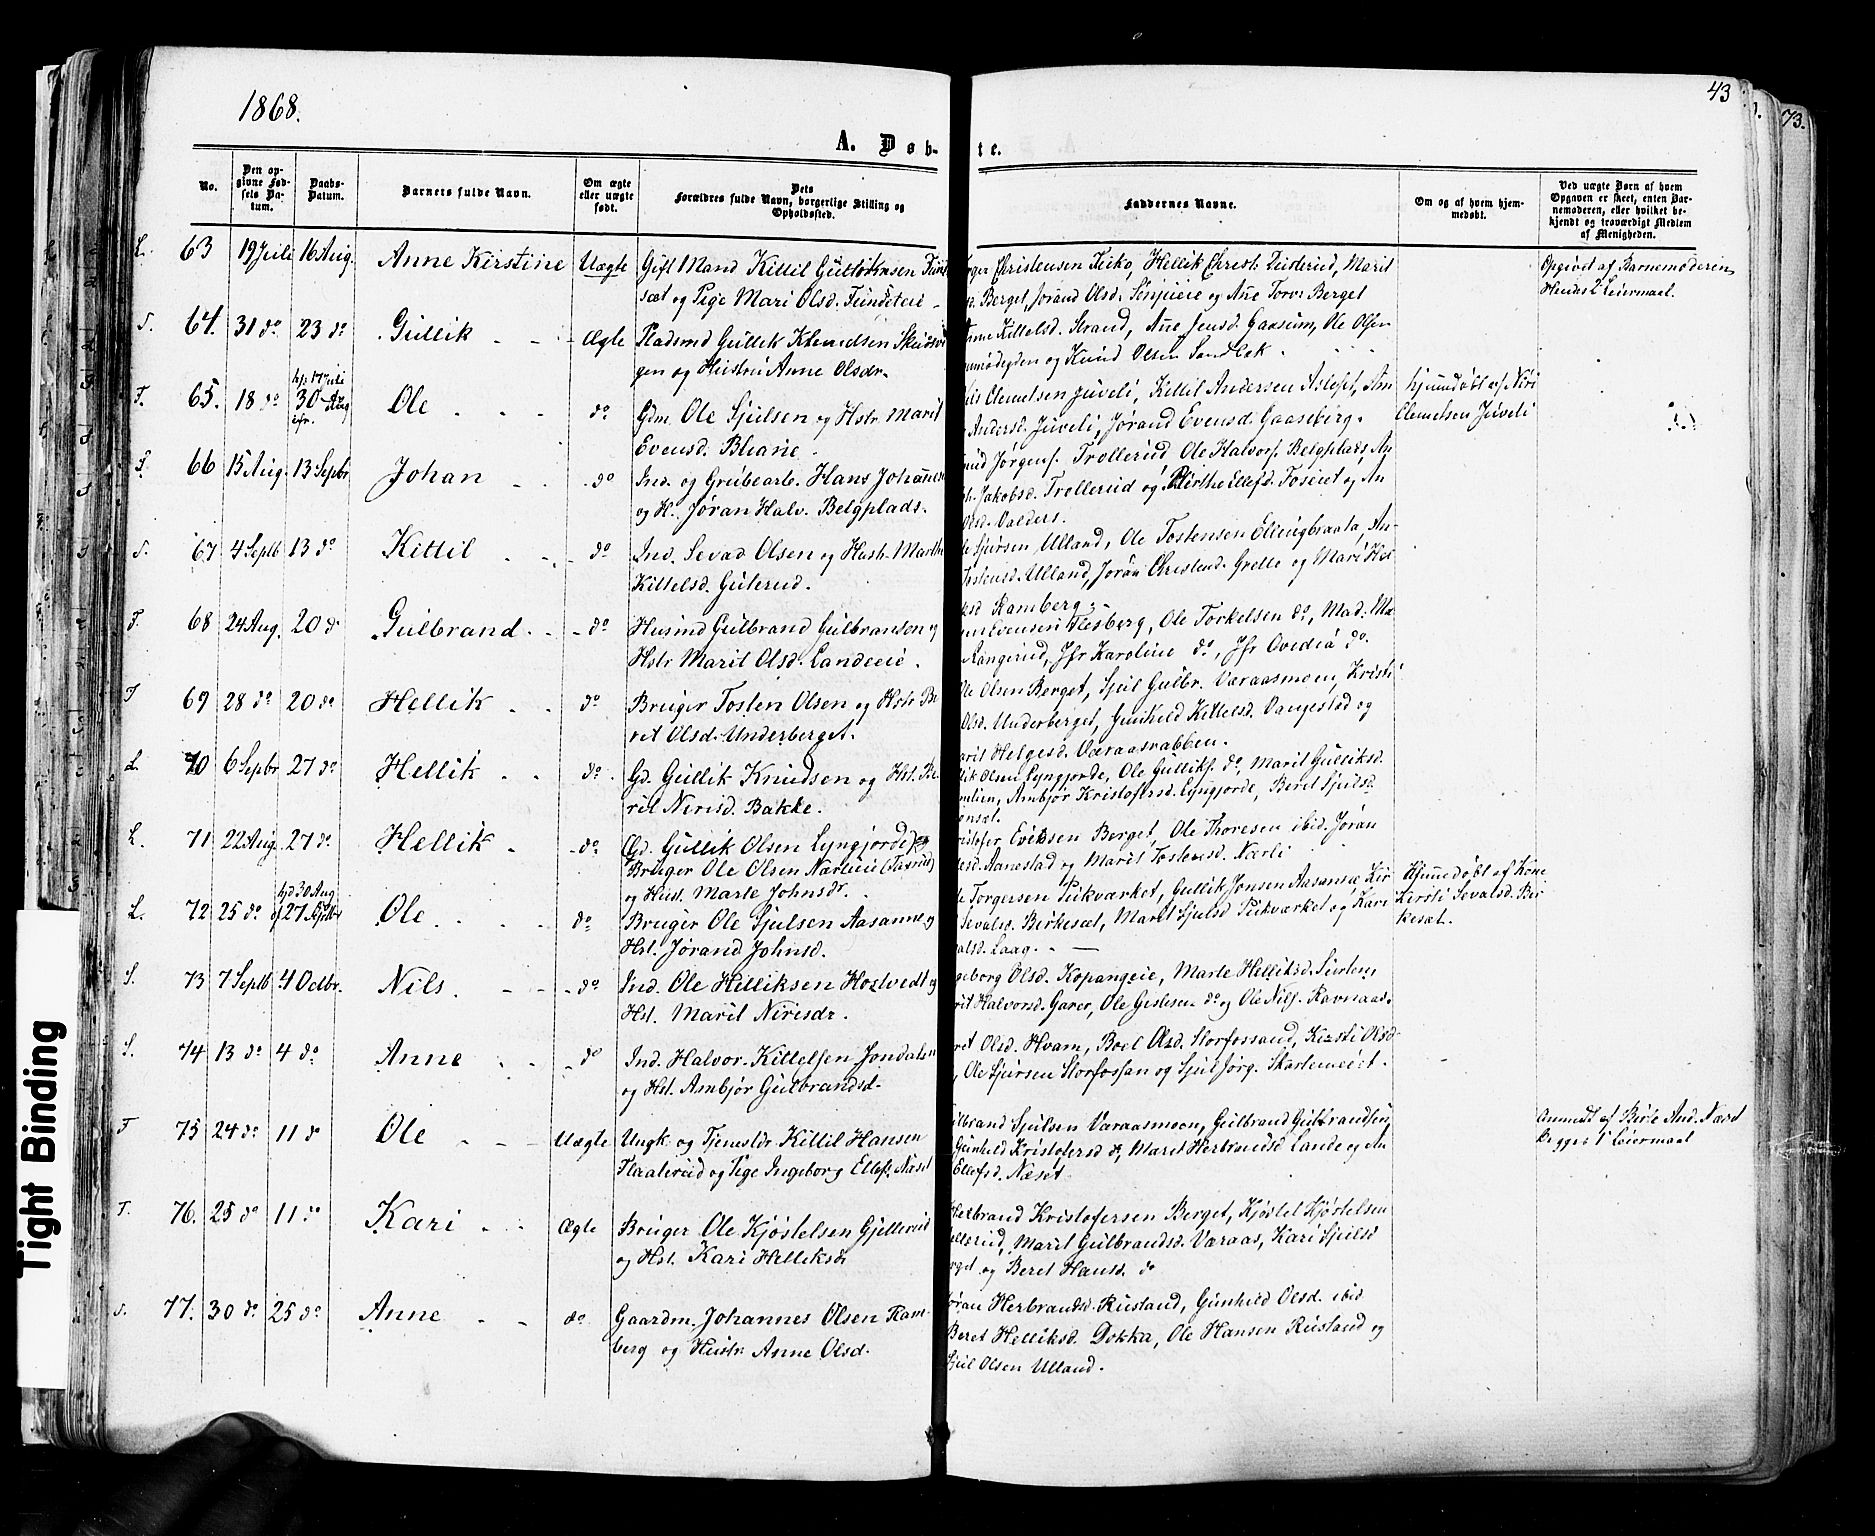 1868.
43
73.
A. Døb-
te.
No.
Den opgivne Fødsels Datum.
Daabs-Datum.
Barnets fulde Navn.
Om ægte eller uægte født.
Dets Forældres fulde Navn, borgerlige Stilling og Opholdssted.
Faddernes Navne.
Om og af hvem hjemmedøbt.
Ved uægte Børn af hvem Opgaven er skeet, enten Barnemoderen, eller hvilket bekjendt og troværdigt Medlem af Menigheden.
L. 63 19 Juli 16 Aug. Anne Kirstine Uægte Gift Mand Kittil
og Pige Mari Olsd. Fundeteie
Christensen Teiko, Hellik Christ. Marit
Berget, Jørand Olsd. og Ane Torv. Berget
Opgivet af Barnemoderen
Hendes 1 Leiermaal.
S. 64. 31 do 23 do Gullik Ægte Pladsmd Gullik Knudsen
gen og Hustru Anne Olsdr.
Kittelsd. Strand, Ane Jensd. Gaasum, Ole Olsen
og Knud Olsen Sandbæk
T. 65. 18 do hjd 17 Juli
30 Aug
efr. Ole do Gdm. Ole Sjulsen og Hstr. Marit
Evensd. Bleaie.
Clemetsen Juveli, Kittil Andersen
Andersd. Juveli, Jørand Evensd. Gaaseberg.
hjemmedøbt af Niri
Clemetsen Juveli
S. 66 15 Aug. 13 Septbr Johan do Ind. og Grubearb. Hans Johannes
og H. Jøran Halv. Belgplads.
Jørgens. Trollerud Ole Halvors. Belgplads, An
Jakobsd. Trollerud og Berthe Ellefsd. Foseiet og An
Olsd. Valders.
S. 67 4 Septb 13 do Kittil do Ind. Sevad Olsen og Hustr. Marthe
Kittelsd. Guterud.
Sjursen Ulland, Ole Tostensen Ellingbraata, An-
Tostensd. Ulland, Jøran Christensd. Grette og Mari Hel
Ramberg.
T. 68 24 Aug. 20 do Gulbrand do Husmd Gulbrand Gulbransen og
Hstr Marit Olsd. Landeeie.
Evensen Flesberg, Ole Torkelsen do, Mad. Ma
Aangerud, Jfr Karoline do, Jfr Ovedia do.
T 69 28 do 20 do Hellik do Bruger Tosten Olsen og Hstr Be
ret Olsd. Underberget.
Ole Olsen Berget, Sjul Gulbr. Væraasmoen, Kristi
Olsd. Underberget, Gunhild Kittelsd. Vangestad og
Marit Helgesd. Væraasnabben.
L. 70 6 Septbr 27 do Hellik do. Gd. Gullik Knudsen og Hst. Be
rit Nirisd. Bakke.
Olsen Lyngjorde, Ole Gulliks. do, Marit Gulliksd.
Ambjør Kristofersd. Lyngjorde, Beret Sjulsd.
L. 71 22 Aug. 27 do Hellik do. Gd. Gullik Olsen Lyngjorde og
Bruger Ole Olsen
og Hust. Marte Johnsdr.
Eviksen Berget, Ole Thoresen ibid. Jøran
Aanestad og Marit Tostensd. Nærli
L. 72 25 do hjd 30 Aug
27 Septbr Ole do Bruger Ole Sjulsen Aasanne og
Hst. Jørand Johnsd.
Torgersen Pukværket, Gullik Jonsen Aasanne Kir
Sevalsd. Birkesæt, Marit Sjulsd Pukværket og Kari
Laag.
Hjemmedøbt af Kone
Kirsti Sevalsd. Bir
kesæt.
S. 73 7 Septb 4 Octbr. Nils do Ind. Ole Helliksen Hostvedt og
Hst. Marit Nirisdr.
Ingeborg Olsd. Kopangeie, Marte Helliksd.
Halvorsd. Garer, Ole Gislesen do og Ole Nils. Ravnaas.
S. 74 13 do 4 do Anne do Ind. Halvor Kittelsen Jondalen
og Hst. Ambjør Gulbrandsd.
Olsd. Hvam, Boel Olsd. Storfossand, Kirsti Olsd
Ole Sjursen Storfossan og Sjul Jørg. Skartemoeiet.
T 75 24 do 11 do Ole Uægte Ungk. og Tjenestdr. Kittil Hansen
Flaaterud og Pige Ingeborg Ellefs. Næset
Gulbrand Sjulsen Væraasmoen, Gulbrand Gulbrandsen
Gunhild Kristofersd do, Marit Herbrandsd Lande og An
Ellefsd. Næset.
Anmeldt af Birte And. Næset
Begges 1 Leiermaal
T. 76. 25 do 11 do Kari Ægte Bruger Ole Kjøstelsen Gjellerud
og Hst. Kari Helliksdr
Herbrand Kristofersen Berget, Kjøstel Kjøstelsen
Gjellerud, Marit Gulbrandsd. Væraas, Kari Sjulsd
Berget og Beret Hansd. do
S. 77. 30 do 25 do Anne do Gaardm. Johannes Olsen Ram-
berg og Hustr. Anne Olsd.
Jøran Herbrandsd. Rustand, Gunhild Olsd. ibid
Beret Helliksd. Dokka, Ole Hansen Rustand og
Sjul Olsen Ulland.
Tight Binding